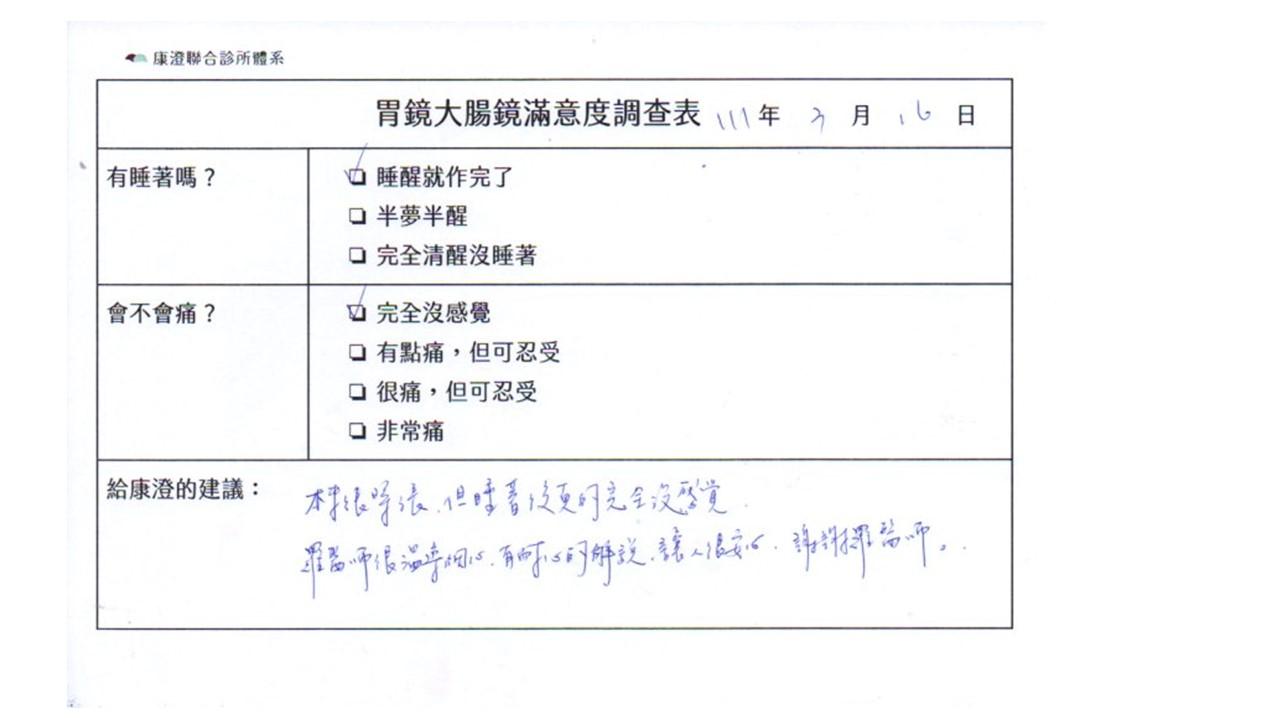 康澄聯合診所體系
胃鏡大腸鏡滿意度調查表 111年 3 月 16 日
有睡著嗎？
睡醒就作完了
半夢半醒
完全清醒沒睡著
會不會痛？
完全沒感覺
有點痛，但可忍受
很痛，但可忍受
非常痛
給康澄的建議：
本來很緊張、但睡著後真的完全沒感覺.
羅醫師很溫專細心、有耐心的解說、讓人很安心. 謝謝羅醫師。